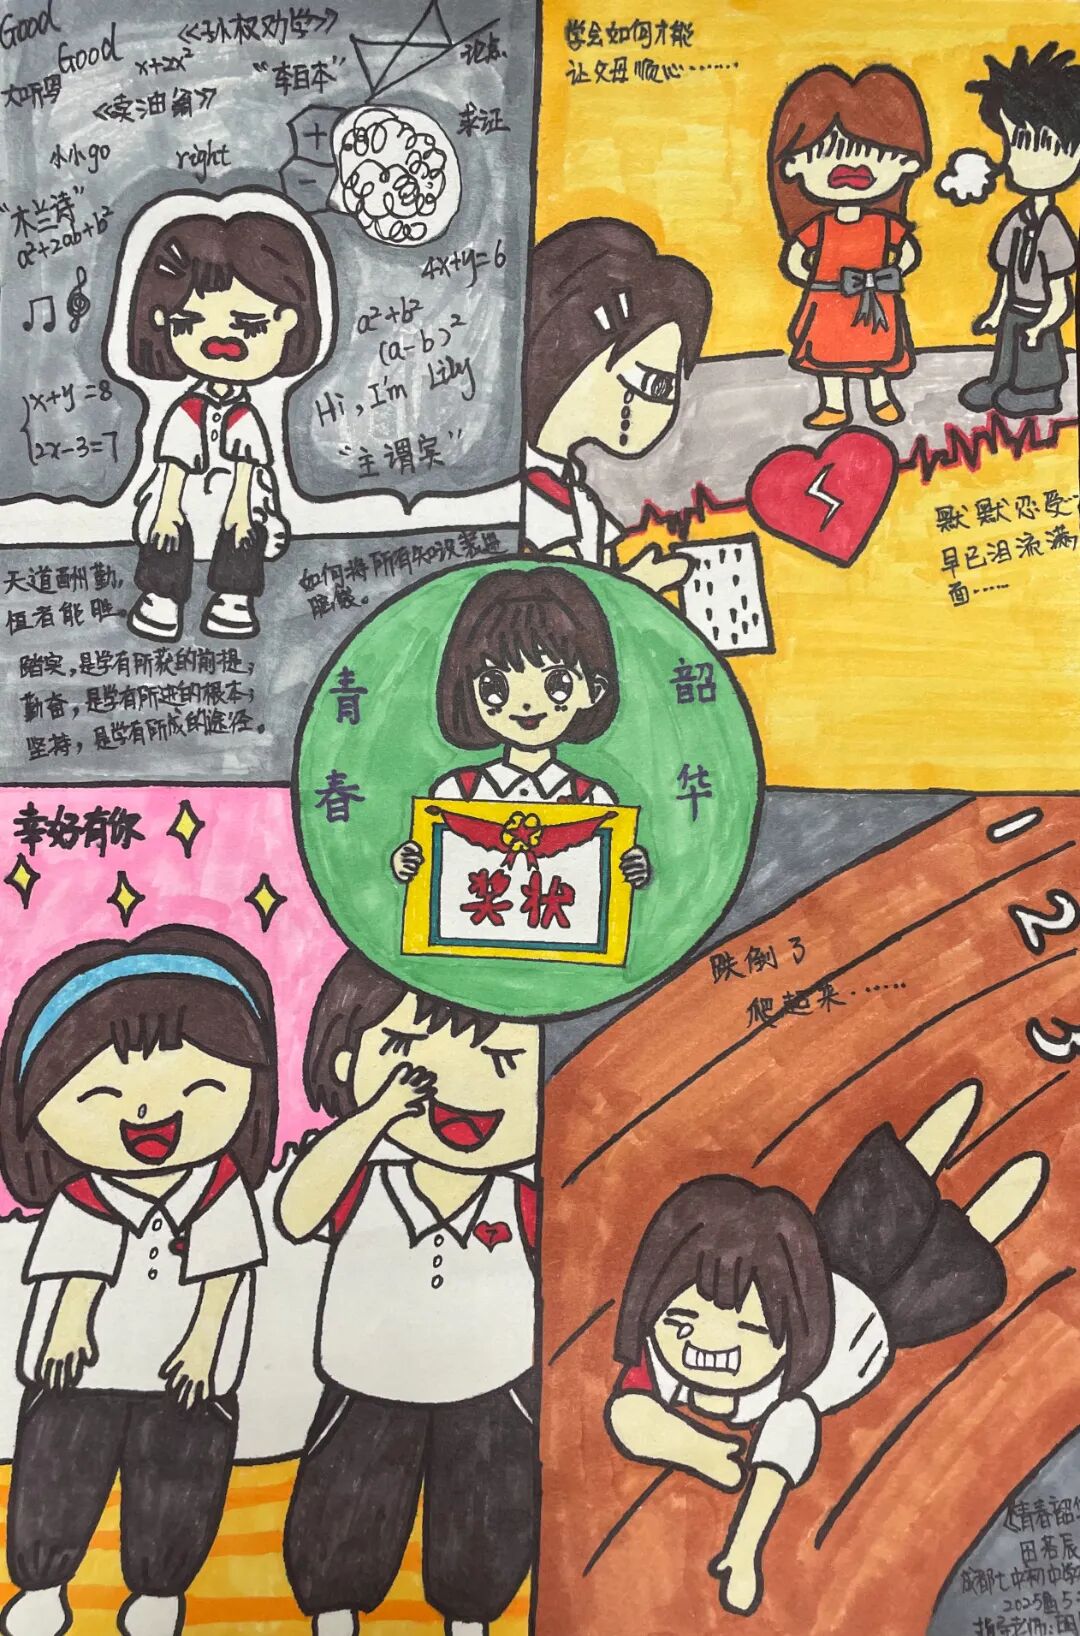 Good
Good
《孙权劝学》
x+2x²
"李白本"
论点
《卖油翁》
求证
+
−
小小go
right
"木兰诗"
a²+2ab+b²
4x+y=6
a²+b²
(a-b)²
Hi, I'm Lily
x+y=8
2x-3=7
"主谓宾"
天道酬勤,
恒者能胜。
如何将所有知识装进
脑袋。
踏实,是学有所获的前提;
勤奋,是学有所进的根本;
坚持,是学有所成的途径。
学会如何才能
让父母顺心……
默默忍受
早已泪流满
面……
青春
韶华
奖状
幸好有你
7
跌倒了
爬起来……
1
2
3
《青春韶华
田若辰
成都七中初中学
2025
指导老师:田